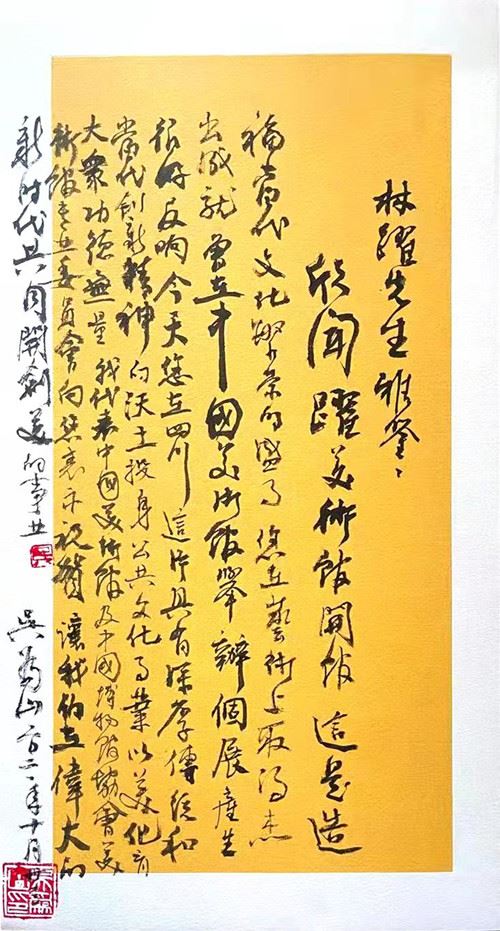 林躍先生雅鉴
欣闻躍美術馆開馆這是造
福當代文化繁荣的盛事您在藝術上取得杰
出成就曾在中國美術馆舉辦個展產生
很好反响今天您在四川這片具有深厚傳统和
當代创新精神的沃土投身公共文化事業以美化育
大衆功德無量我代表中國美術馆及中國博物馆協會美
術馆专业委員會向您表示祝贺讓我们在偉大的
新时代共同開創美的事业
吳為山 年十月